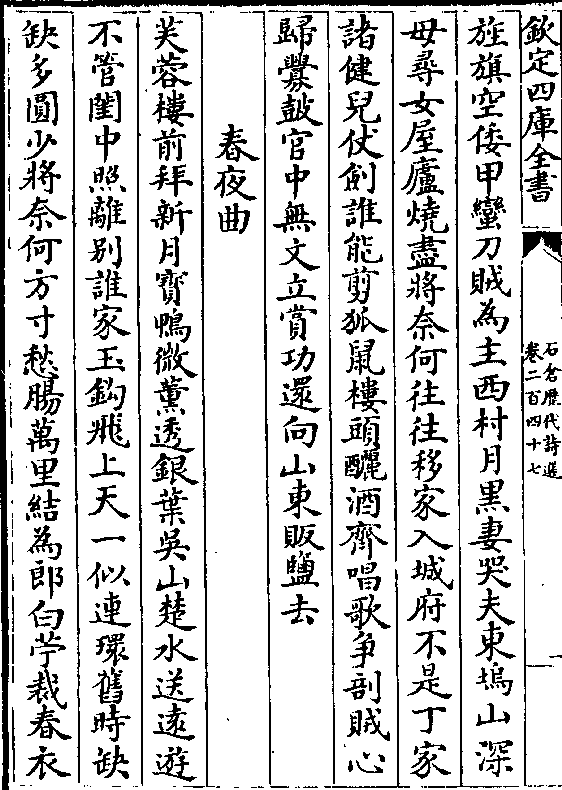 欽定四庫全書
石倉歷代詩選
卷二百四十七
一
旌旗空倭甲蠻刀賊為主西村月黒妻哭夫東塢山深
母尋女屋廬燒盡將奈何往往移家入城府不是丁家
諸健兒仗劍誰能剪狐鼠樓頭釃酒齊唱歌爭剖賊心
歸釁鼓官中無文立賞功還向山東販鹽去
春夜曲
芙蓉樓前拜新月寳鴨微薰透銀葉吳山楚水送遠遊
不管閨中照離别誰家玉鈎飛上天一似連環舊時缺
缺多圓少將奈何方寸愁腸萬里結為郎白苧裁春衣